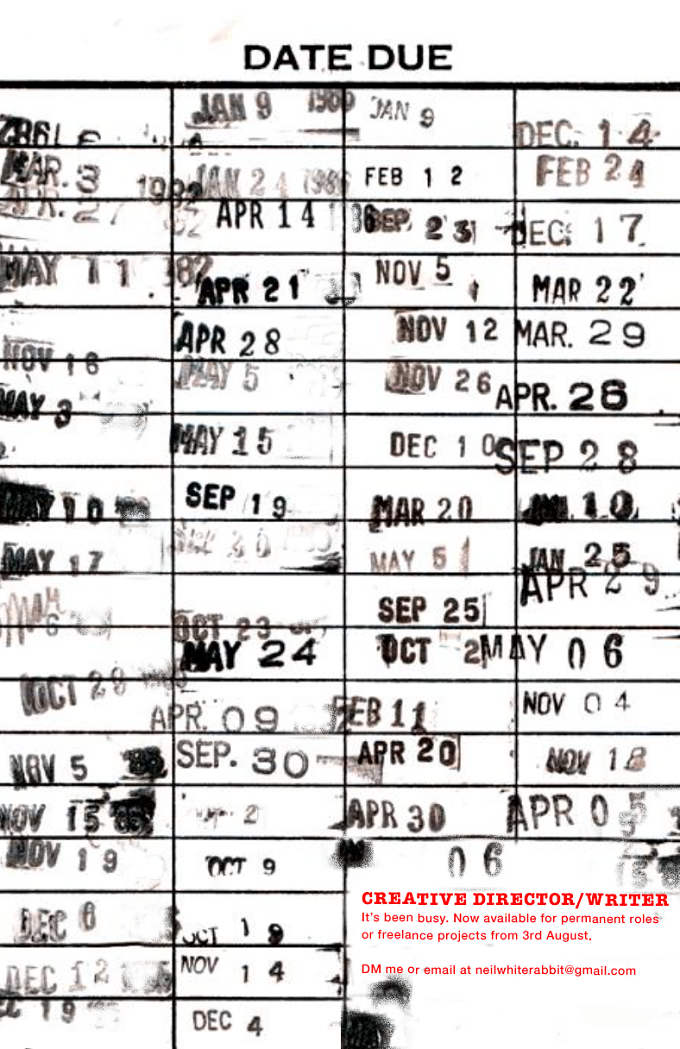 DATE DUE
MAR. 3
APR. 27
MAY 11
NOV 16
MAY 3
MAY 10
MAY 17
OCT 28
NOV 5
NOV 15
NOV 19
DEC 6
DEC 12
19
JAN 9
JAN 24 1986
APR 14
APR 21
APR 28
MAY 5
MAY 15
SEP 19
OCT 23
MAY 24
APR. 09
SEP. 30
2
OCT 9
OCT 19
NOV 14
DEC 4
JAN 9
FEB 12
SEP. 23
NOV 5
NOV 12
NOV 26
DEC 10
MAR 20
MAY 5
SEP 25
OCT 2
FEB 11
APR 20
APR 30
06
DEC. 14
FEB 24
DEC. 17
MAR 22
MAR. 29
APR. 26
SEP 28
JAN. 10
JAN 25
APR 29
MAY 06
NOV 04
NOV 18
APR 05
CREATIVE DIRECTOR/WRITER
It's been busy. Now available for permanent roles
or freelance projects from 3rd August.
DM me or email at neilwhiterabbit@gmail.com